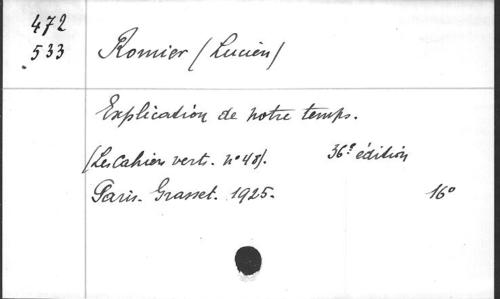 472
533
Romier (Lucien)
Explication de notre temps.
(Les Cahiers verts. n° 48). 36e édition
Paris. Grasset. 1925. 16°